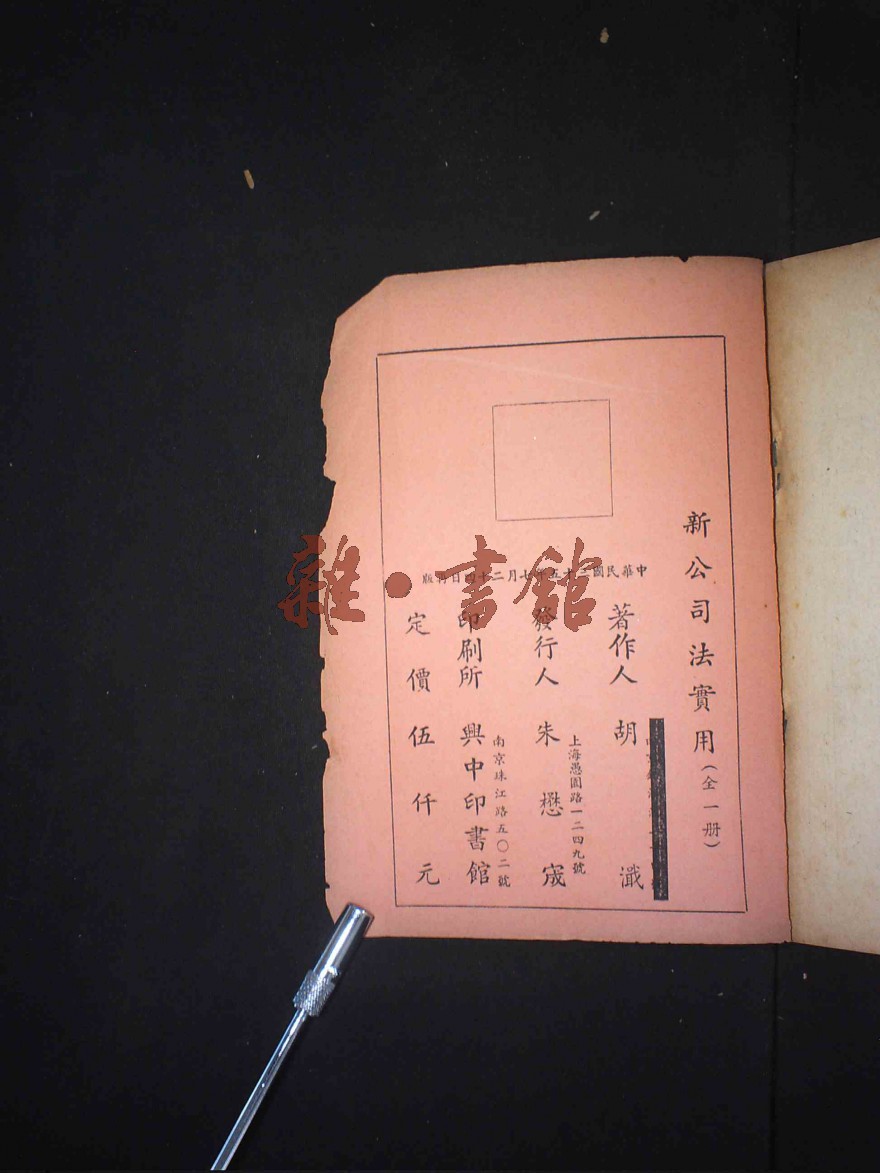 新公司法實用(全一册)
中華民國三十五年七月二十四日初版
著作人 胡瀐
上海愚園路一二四九號
發行人 朱懋宬
南京珠江路五〇二號
印刷所 興中印書館
定價伍仟元
雜·書館